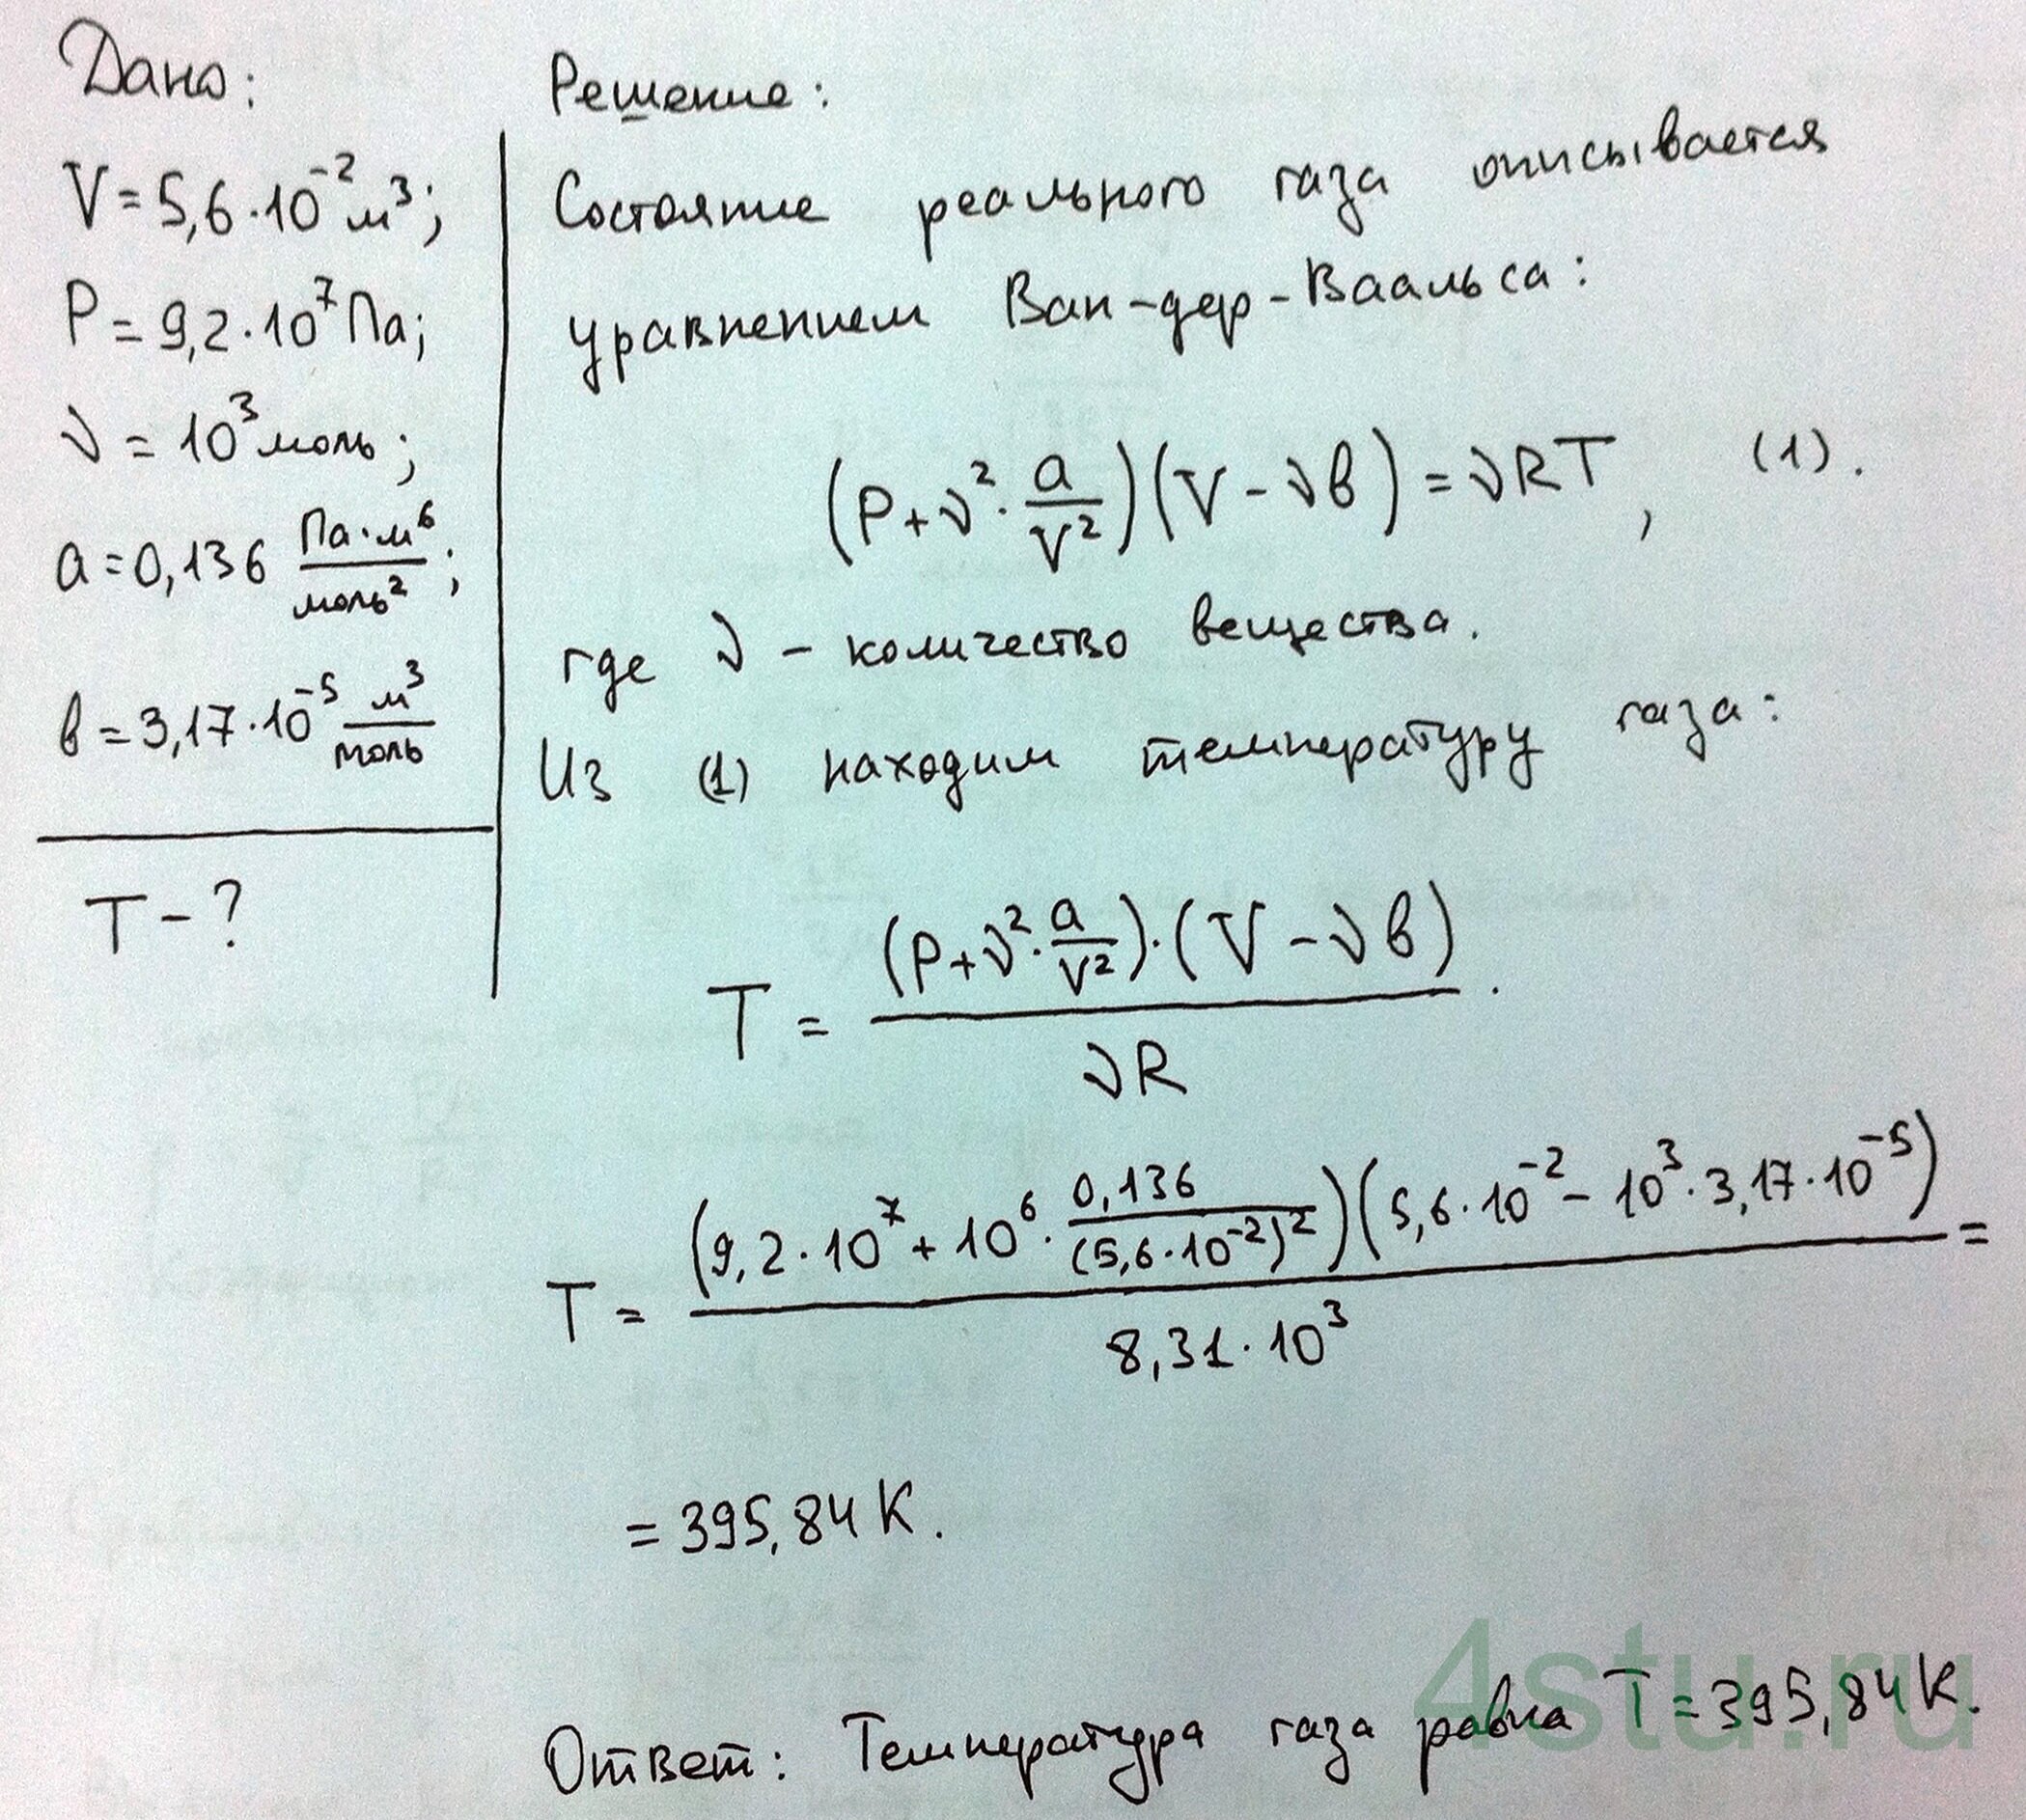 Дано:
V = 5,6·10⁻² м³;
P = 9,2·10⁷ Па;
ν = 10³ моль;
a = 0,136 Па·м⁶/моль²;
в = 3,17·10⁻⁵ м³/моль
T - ?
Решение:
Состояние реального газа описывается
уравнением Ван-дер-Ваальса:
(P + ν²·a/V²)(V - νв) = νRT, (1).
где ν - количество вещества.
Из (1) находим температуру газа:
T = (P + ν²·a/V²)·(V - νв)/νR.
T = (9,2·10⁷ + 10⁶·0,136/(5,6·10⁻²)²)(5,6·10⁻² - 10³·3,17·10⁻⁵)/8,31·10³ =
= 395,84 К.
Ответ: Температура газа равна T = 395,84 К.
4stu.ru